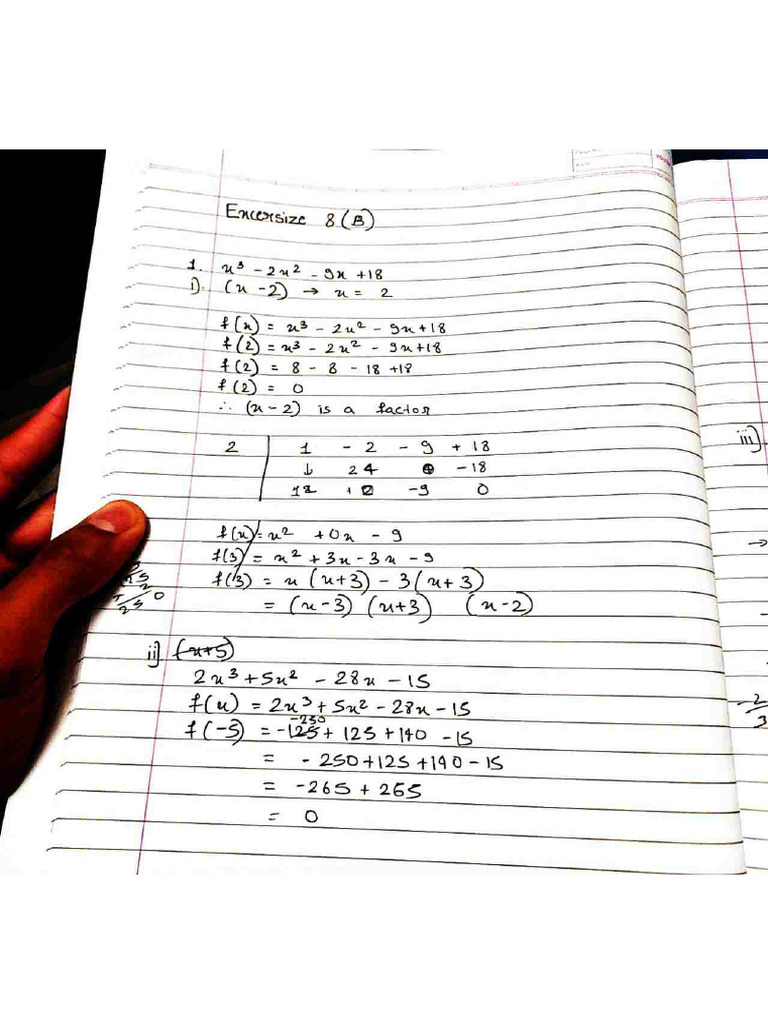 Excersize 8 (B)
1. x³ - 2x² - 9x + 18
i). (x - 2) → x = 2
f(x) = x³ - 2x² - 9x + 18
f(2) = x³ - 2x² - 9x + 18
f(2) = 8 - 8 - 18 + 18
f(2) = 0
∴ (x - 2) is a factor
2 | 1 - 2 - 9 + 18
↓ 2 0 - 18
1 + 0 - 9 0
f(x) = x² + 0x - 9
f(3) = x² + 3x - 3x - 9
f(3) = x (x + 3) - 3 (x + 3)
= (x - 3) (x + 3) (x - 2)
ii]. (x + 5)
2x³ + 5x² - 28x - 15
f(x) = 2x³ + 5x² - 28x - 15
-250
f(-5) = -125 + 125 + 140 - 15
= - 250 + 125 + 140 - 15
= - 265 + 265
= 0
iii]
→
-2/3